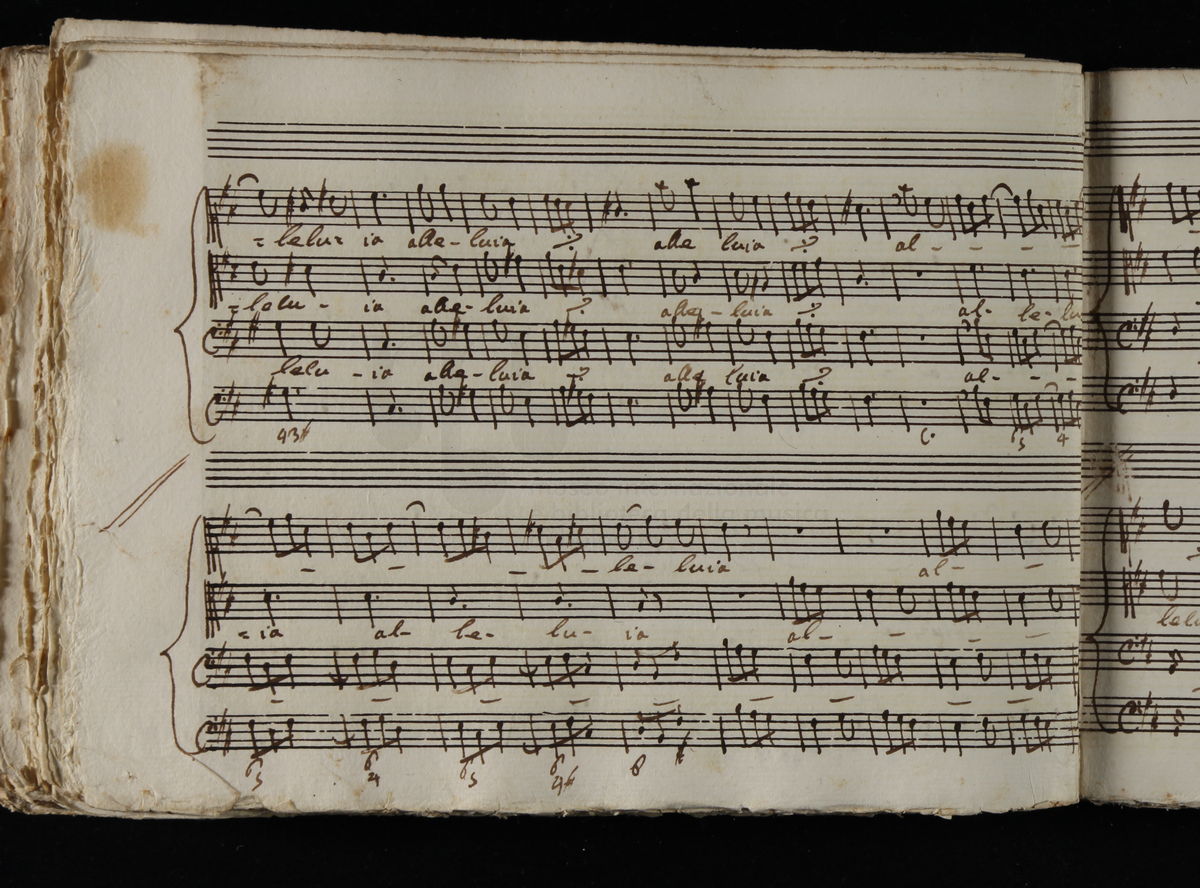 = lelu= ia alle-luia alle luia al - - - -
= lelu - ia alle- luia alle - luia al- le- lu
lelu - ia alle-luia alle luia al- - - -
43#
6 5 4
- - - - le- luia al- -
= ia al- le- lu- ia al- - - -
- - - - - - - -
6 5 6 4 6 5 6 4# 8 #
lelu